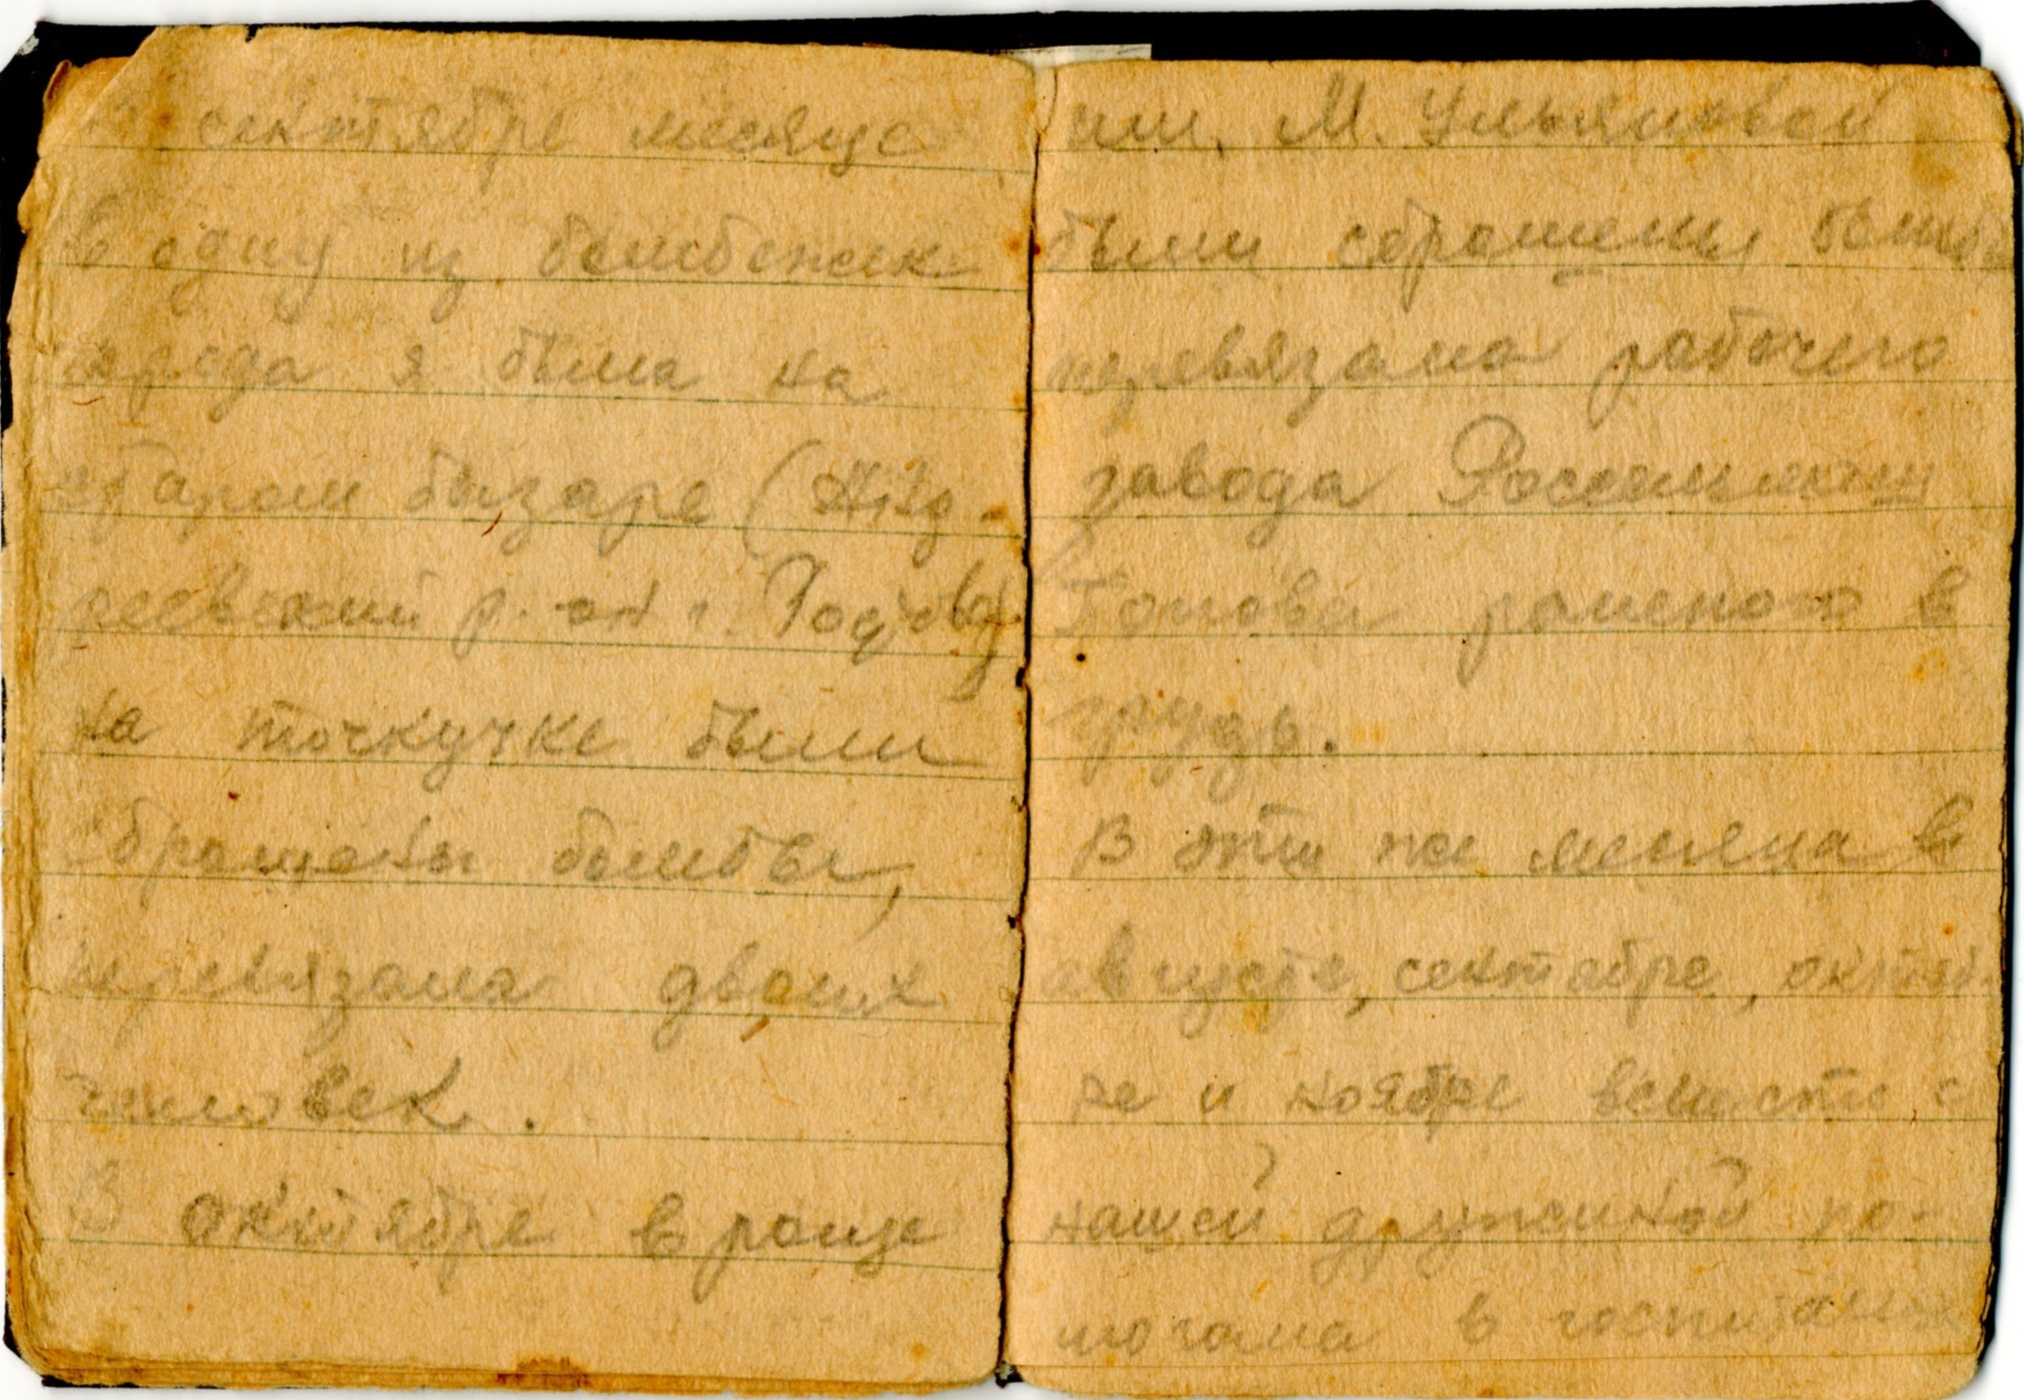 В сентябре месяце
В одну из бомбежек
города я была на
старом базаре (Анд-
реевский р-он г. Ростова)
на точкучке были
сброшены бомбы,
перевязала двоих
человек.
В октябре в роще
им. М. Ульяновой
были сброшены бомбы
перевязала рабочего
завода Россельмаш
Попова раненого в
грудь.
В эти же месяца в
августе, сентябре, октяб-
ре и ноябре вместе с
нашей дружиной по-
могала в госпиталях